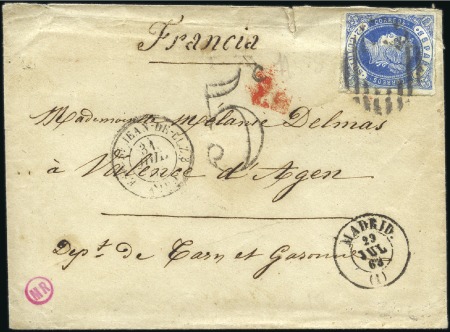 Francia
CORREOS
5
Mademoiselle Melanie Delmas
ST JEAN-DE-LUZ
31
JUIL
à Valence d'Agen
MADRID
29
JUL
63
(1)
Dept. de Tarn et Garonne
MR